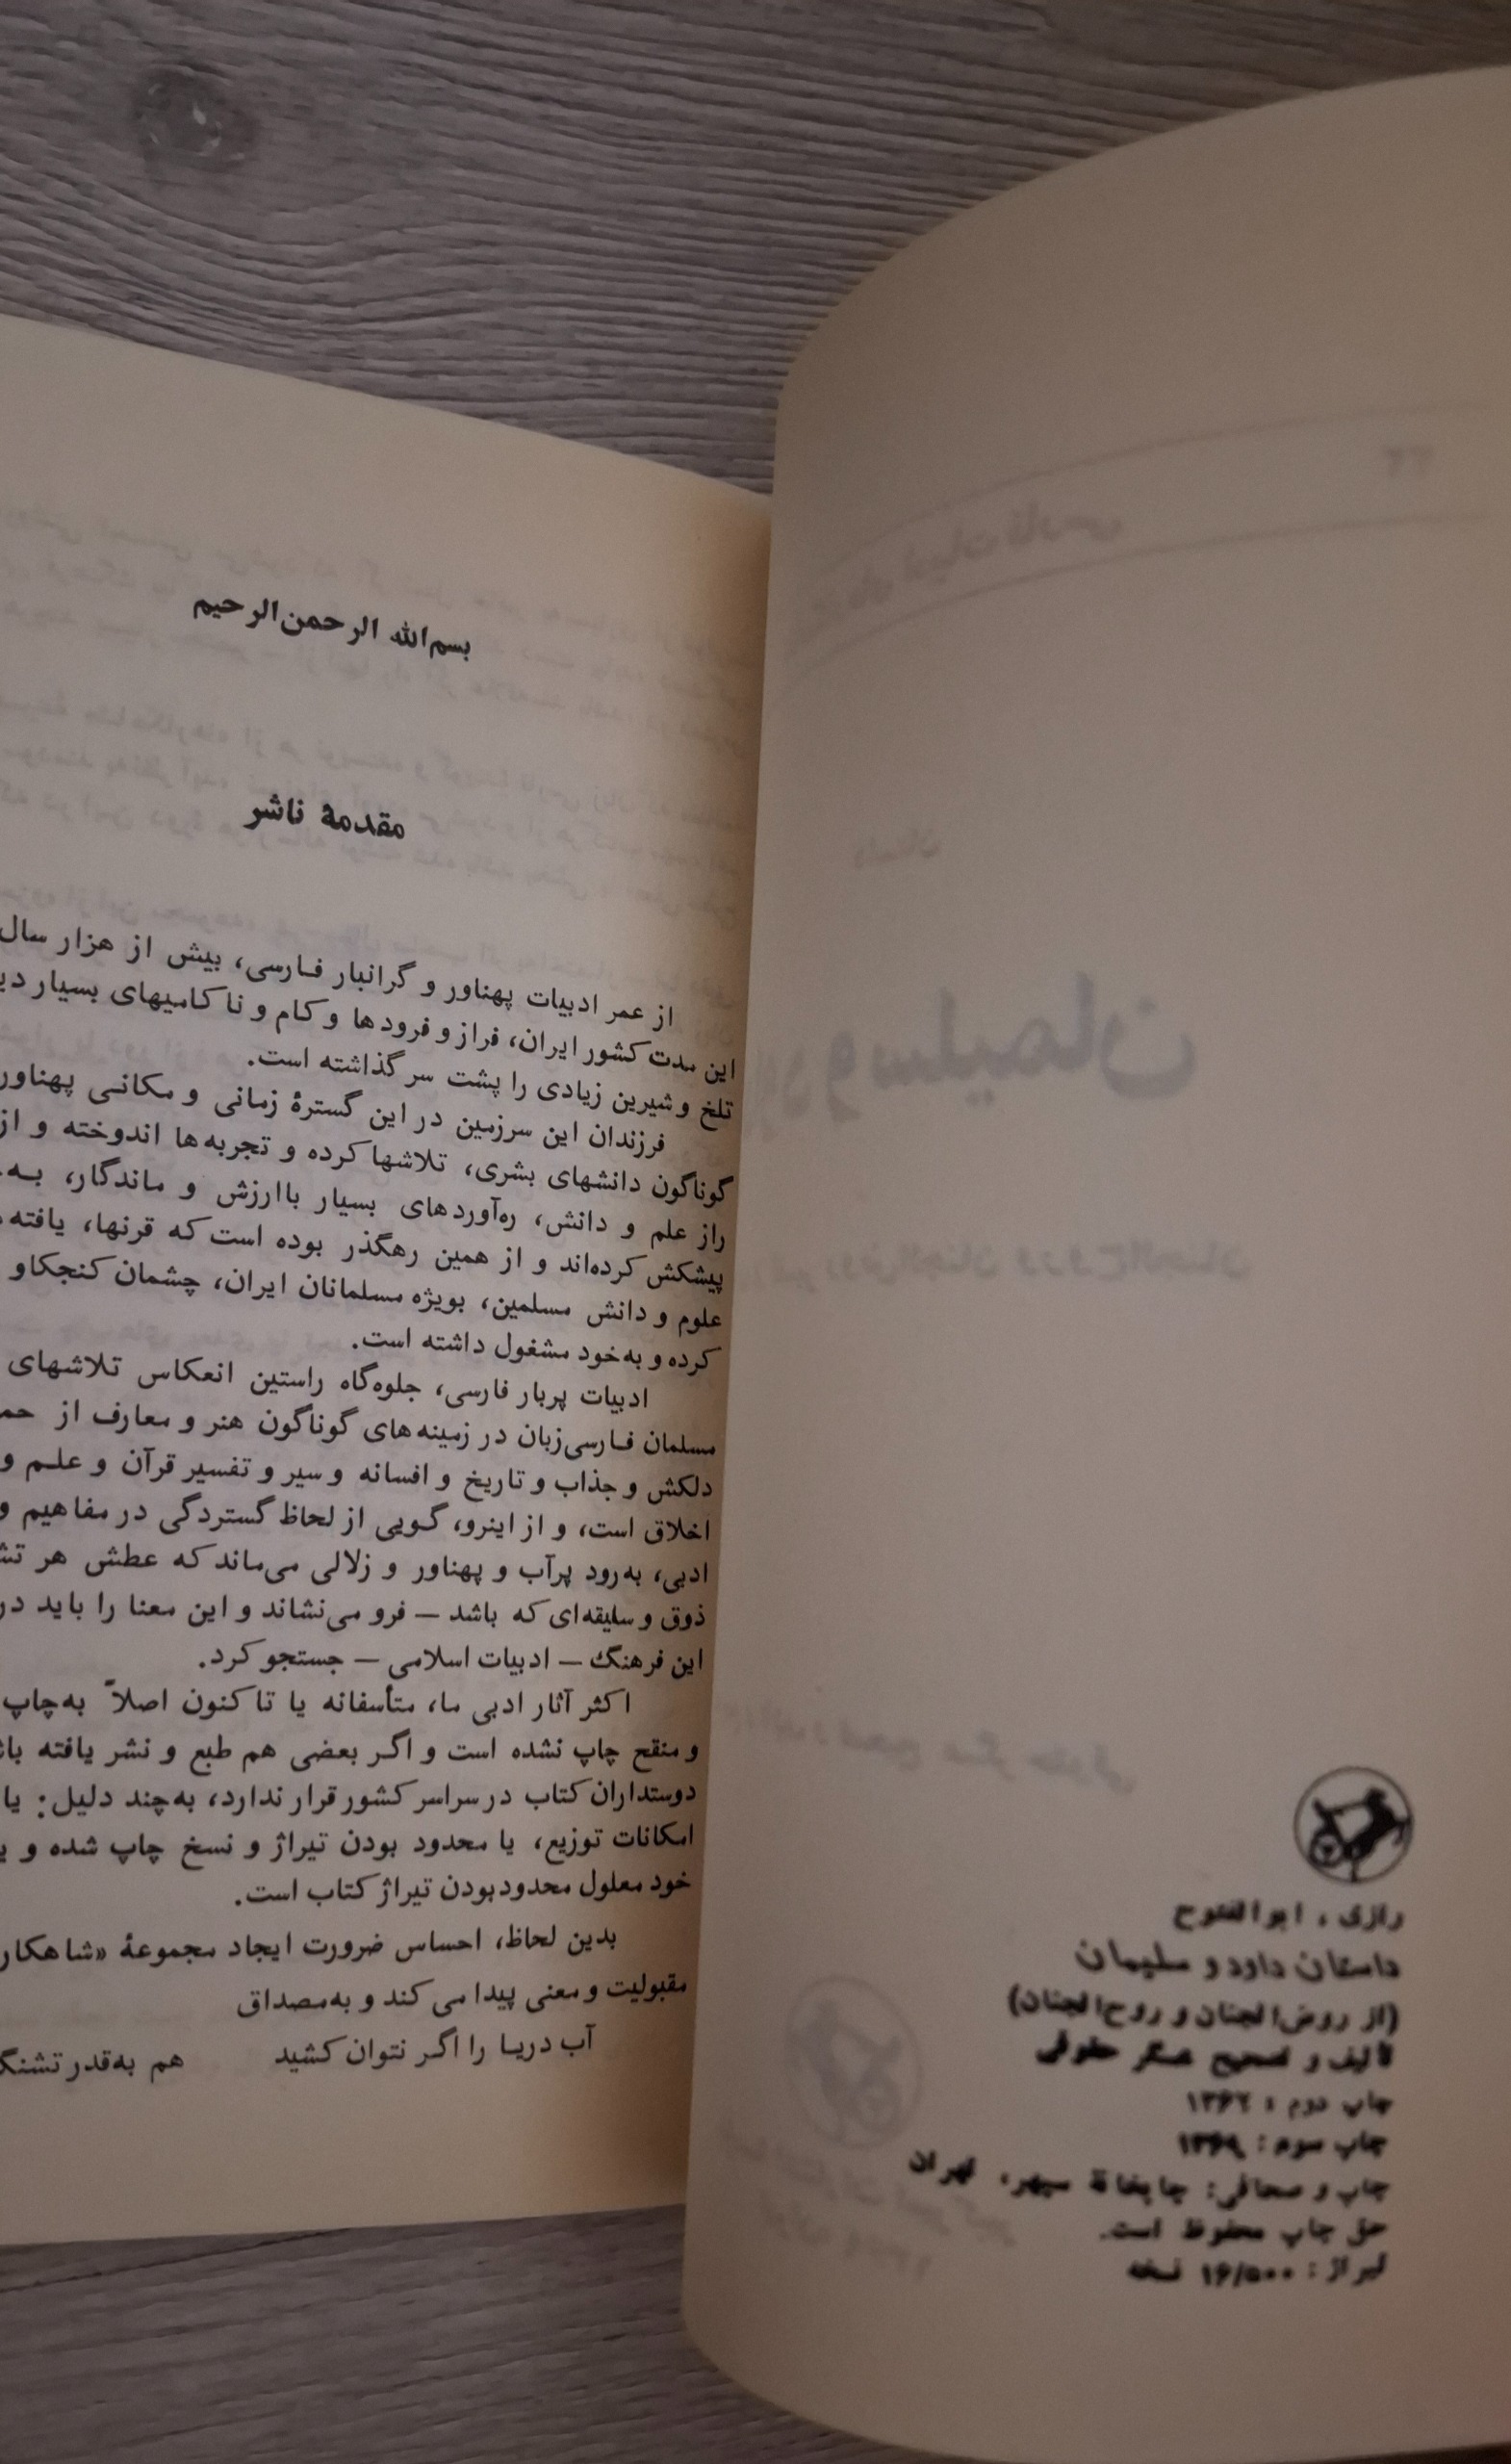 رازی، ابوالفتوح
داستان داود و سلیمان
(از روض‌الجنان و روح‌الجنان)
تألیف و تصحیح عسکر حقوقی
چاپ دوم: ۱۳۶۲
چاپ سوم:
چاپ و صحافی: چاپخانهٔ سپهر، تهران
حق چاپ محفوظ است.
تیراژ: ۱۶/۵۰۰ نسخه
بسم‌الله الرحمن‌الرحیم
مقدمهٔ ناشر
از عمر ادبیات پهناور و گرانبار فارسی، بیش از هزار سال
این مدت کشور ایران، فراز و فرودها و کام و ناکامیهای بسیار
تلخ و شیرین زیادی را پشت سر گذاشته است.
فرزندان این سرزمین در این گسترهٔ زمانی و مکانی پهناور
گوناگون دانشهای بشری، تلاشها کرده و تجربه‌ها اندوخته و از
راز علم و دانش، ره‌آوردهای بسیار باارزش و ماندگار، به
پیشکش کرده‌اند و از همین رهگذر بوده است که قرنها، یافته
علوم و دانش مسلمین، بویژه مسلمانان ایران، چشمان کنجکاو
کرده و به‌خود مشغول داشته است.
ادبیات پربار فارسی، جلوه‌گاه راستین انعکاس تلاشهای
مسلمان فارسی‌زبان در زمینه‌های گوناگون هنر و معارف از
دلکش و جذاب و تاریخ و افسانه و سیر و تفسیر قرآن و علم و
اخلاق است، و از اینرو، گویی از لحاظ گستردگی در مفاهیم و
ادبی، به‌رود پرآب و پهناور و زلالی می‌ماند که عطش هر
ذوق و سلیقه‌ای که باشد — فرو می‌نشاند و این معنا را باید در
این فرهنگ — ادبیات اسلامی — جستجو کرد.
اکثر آثار ادبی ما، متأسفانه یا تا کنون اصلاً به‌چاپ
و منقح چاپ نشده است و اگر بعضی هم طبع و نشر یافته
دوستداران کتاب در سراسر کشور قرار ندارد، به‌چند دلیل: یا
امکانات توزیع، یا محدود بودن تیراژ و نسخ چاپ شده و
خود معلول محدود بودن تیراژ کتاب است.
بدین لحاظ، احساس ضرورت ایجاد مجموعهٔ «شاهکار
مقبولیت و معنی پیدا می کند و به‌مصداق
آب دریا را اگر نتوان کشید هم به‌قدر